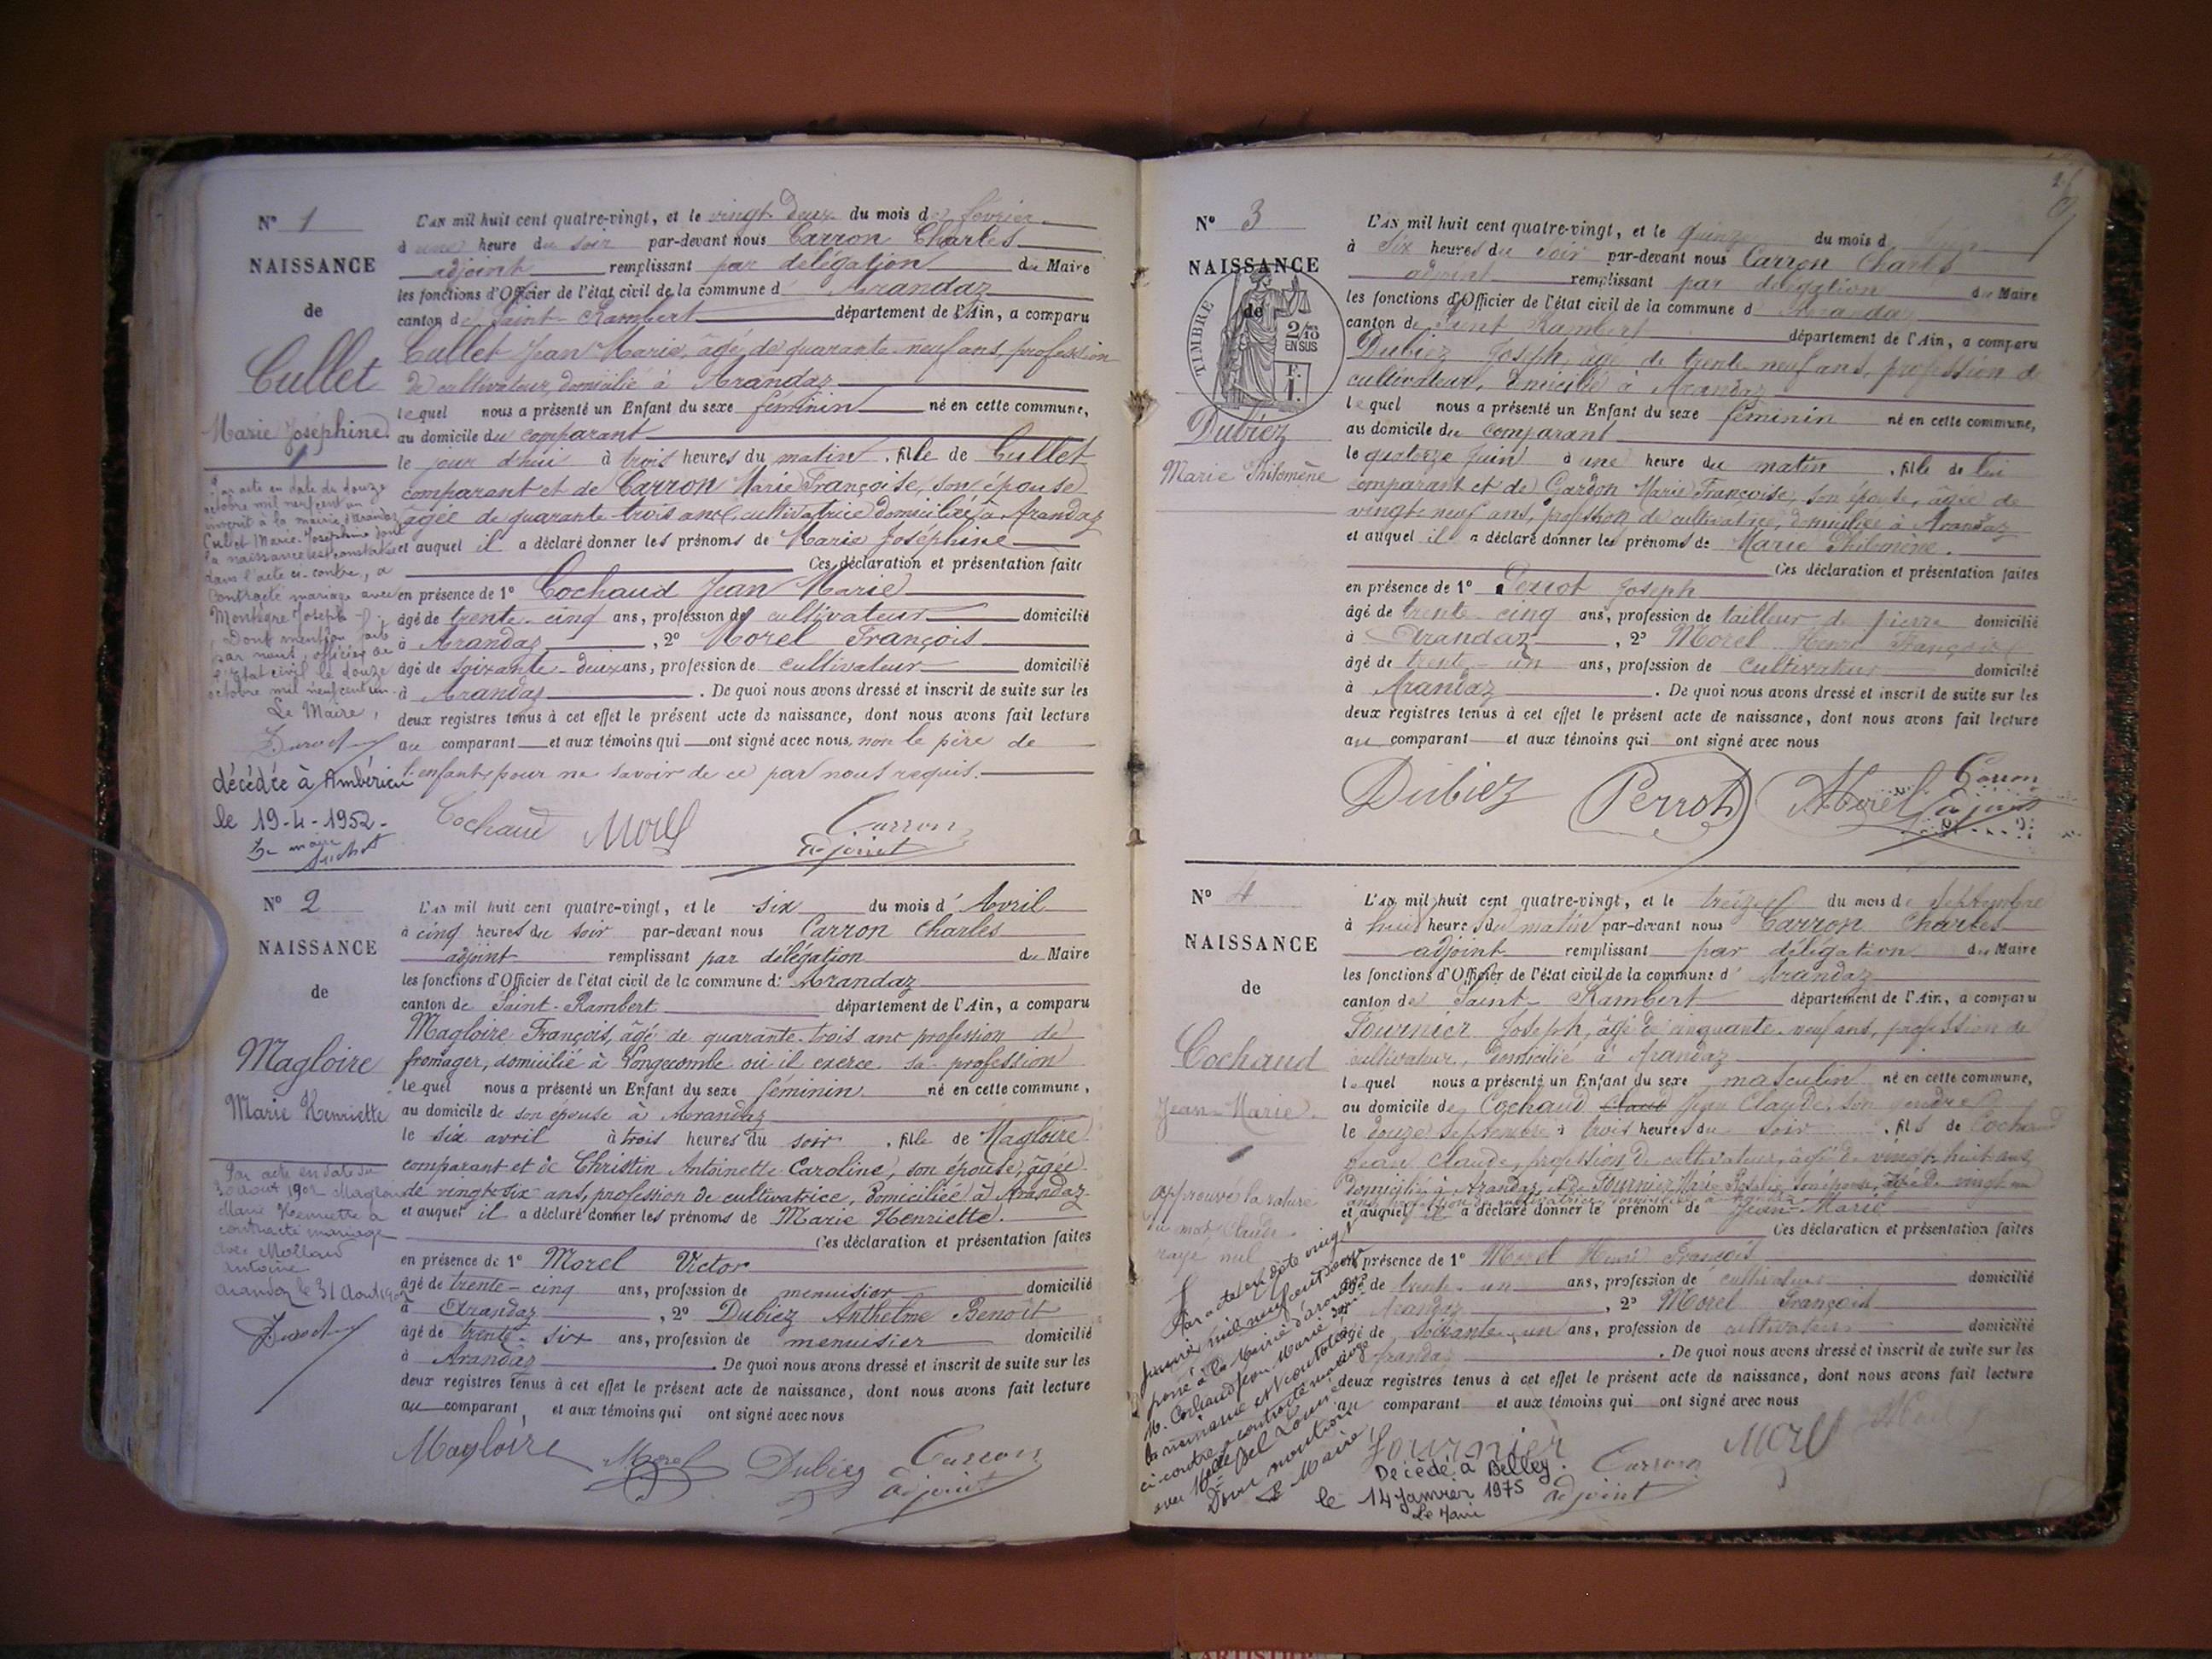 N° 1
NAISSANCE
de
Cullet
Marie Joséphine
L'AN mil huit cent quatre-vingt, et le vingt deux du mois de février
à une heure du soir par-devant nous Carron Charles
adjoint remplissant par délégation du Maire
les fonctions d'Officier de l'état civil de la commune d' Arandaz
canton de Saint-Rambert département de l'Ain, a comparu
Cullet Jean Marie, âgé de quarante-neuf ans, profession
de cultivateur, domicilié à Arandaz
lequel nous a présenté un Enfant du sexe féminin né en cette commune,
au domicile du comparant
le jour d'hui à trois heures du matin, fille de Cullet
comparant et de Carron Marie Françoise, son épouse
âgée de quarante trois ans, cultivatrice domiciliée à Arandaz
et auquel il a déclaré donner les prénoms de Marie Joséphine
Ces déclaration et présentation faites
en présence de 1° Cochaud Jean Marie
âgé de trente-cinq ans, profession de cultivateur domicilié
à Arandaz, 2° Morel François
âgé de soixante-deux ans, profession de cultivateur domicilié
à Arandaz. De quoi nous avons dressé et inscrit de suite sur les
deux registres tenus à cet effet le présent acte de naissance, dont nous avons fait lecture
au comparant et aux témoins qui ont signé avec nous, non le père de
l'enfant pour ne savoir de ce par nous requis.
Cochaud Morel Carron
adjoint
Par acte en date du douze
octobre mil neuf cent un
inscrit à la mairie d'Arandaz
Cullet Marie-Joséphine dont
la naissance est constatée
dans l'acte ci-contre, a
contracté mariage avec
Montègre Joseph
Dont mention faite
par nous, officier de
l'état civil le douze
octobre mil neuf cent un.
Le Maire,
décédée à Ambérieu
le 19-4-1952-
Le maire
N° 2
NAISSANCE
de
Magloire
Marie Henriette
L'AN mil huit cent quatre-vingt, et le six du mois d' Avril
à cinq heures du soir par-devant nous Carron Charles
adjoint remplissant par délégation du Maire
les fonctions d'Officier de l'état civil de la commune d' Arandaz
canton de Saint-Rambert département de l'Ain, a comparu
Magloire François, âgé de quarante-trois ans profession de
fromager, domicilié à Longecombe où il exerce sa profession
lequel nous a présenté un Enfant du sexe féminin né en cette commune,
au domicile de son épouse à Arandaz
le six avril à trois heures du soir, fille de Magloire
comparant et de Christin Antoinette Caroline, son épouse, âgée
de vingt-six ans, profession de cultivatrice, domiciliée à Arandaz
et auquel il a déclaré donner les prénoms de Marie Henriette.
Ces déclaration et présentation faites
en présence de 1° Morel Victor
âgé de trente-cinq ans, profession de menuisier domicilié
à Arandaz, 2° Dubiez Anthelme Benoit
âgé de trente-six ans, profession de menuisier domicilié
à Arandaz. De quoi nous avons dressé et inscrit de suite sur les
deux registres tenus à cet effet le présent acte de naissance, dont nous avons fait lecture
au comparant, et aux témoins qui ont signé avec nous
Magloire Morel Dubiez Carron
adjoint
Par acte en date du
30 août 1902 Magloire
Marie Henriette a
contracté mariage
avec Mollard
Antoine
Arandaz le 31 août 1902
N° 3
NAISSANCE
de
TIMBRE
2/10
EN SUS
Dubiez
Marie Philomène
L'AN mil huit cent quatre-vingt, et le quinze du mois d
à six heures du soir par-devant nous Carron Charles
adjoint remplissant par délégation du Maire
les fonctions d'Officier de l'état civil de la commune d' Arandaz
canton de Saint Rambert département de l'Ain, a comparu
Dubiez Joseph, âgé de trente neuf ans, profession de
cultivateur, domicilié à Arandaz
lequel nous a présenté un Enfant du sexe féminin né en cette commune,
au domicile du comparant
le quatorze juin à une heure du matin, fille de lui
comparant et de Gardon Marie Françoise, son épouse, âgée de
vingt-neuf ans, profession de cultivatrice, domiciliée à Arandaz
et auquel il a déclaré donner les prénoms de Marie Philomène.
Ces déclaration et présentation faites
en présence de 1° Perrot Joseph
âgé de trente-cinq ans, profession de tailleur de pierre domicilié
à Arandaz, 2° Morel Henri François
âgé de trente-un ans, profession de cultivateur domicilié
à Arandaz. De quoi nous avons dressé et inscrit de suite sur les
deux registres tenus à cet effet le présent acte de naissance, dont nous avons fait lecture
au comparant et aux témoins qui ont signé avec nous
Dubiez Perrot Morel Carron
adjoint
N° 4
NAISSANCE
de
Cochaud
Jean-Marie
L'AN mil huit cent quatre-vingt, et le treize du mois de septembre
à huit heures du matin par-devant nous Carron Charles
adjoint remplissant par délégation du Maire
les fonctions d'Officier de l'état civil de la commune d' Arandaz
canton de Saint-Rambert département de l'Ain, a comparu
Fournier Joseph, âgé de cinquante-neuf ans, profession de
cultivateur, domicilié à Arandaz
lequel nous a présenté un Enfant du sexe masculin né en cette commune,
au domicile de Cochaud Claude Jean Claude, son gendre
le douze septembre à trois heures du soir, fils de Cochaud
Jean Claude, profession de cultivateur, âgé de vingt huit ans
domicilié à Arandaz et de Fournier Marie Rosalie son épouse, âgée de vingt un
ans, profession de cultivatrice domiciliée à Arandaz
et auquel il a déclaré donner le prénom de Jean-Marie
Ces déclaration et présentation faites
en présence de 1° Morel Henri François
âgé de trente-un ans, profession de cultivateur domicilié
à Arandaz, 2° Morel François
âgé de soixante-un ans, profession de cultivateur domicilié
à Arandaz. De quoi nous avons dressé et inscrit de suite sur les
deux registres tenus à cet effet le présent acte de naissance, dont nous avons fait lecture
au comparant et aux témoins qui ont signé avec nous
Fournier Carron Morel
adjoint
approuvé la rature
du mot Claude
rayé nul
Par acte en date vingt
janvier mil neuf cent
passé à la Mairie d'Arandaz
M. Cochaud Jean Marie dont
la naissance est constatée
ci contre a contracté mariage
avec Melle
Dont mention
Le Maire
Décédé à Belley
le 14 janvier 1975
Le Maire